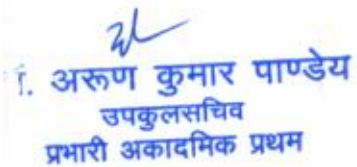 अरूण कुमार पाण्डेय
उपकुलसचिव
प्रभारी अकादमिक प्रथम